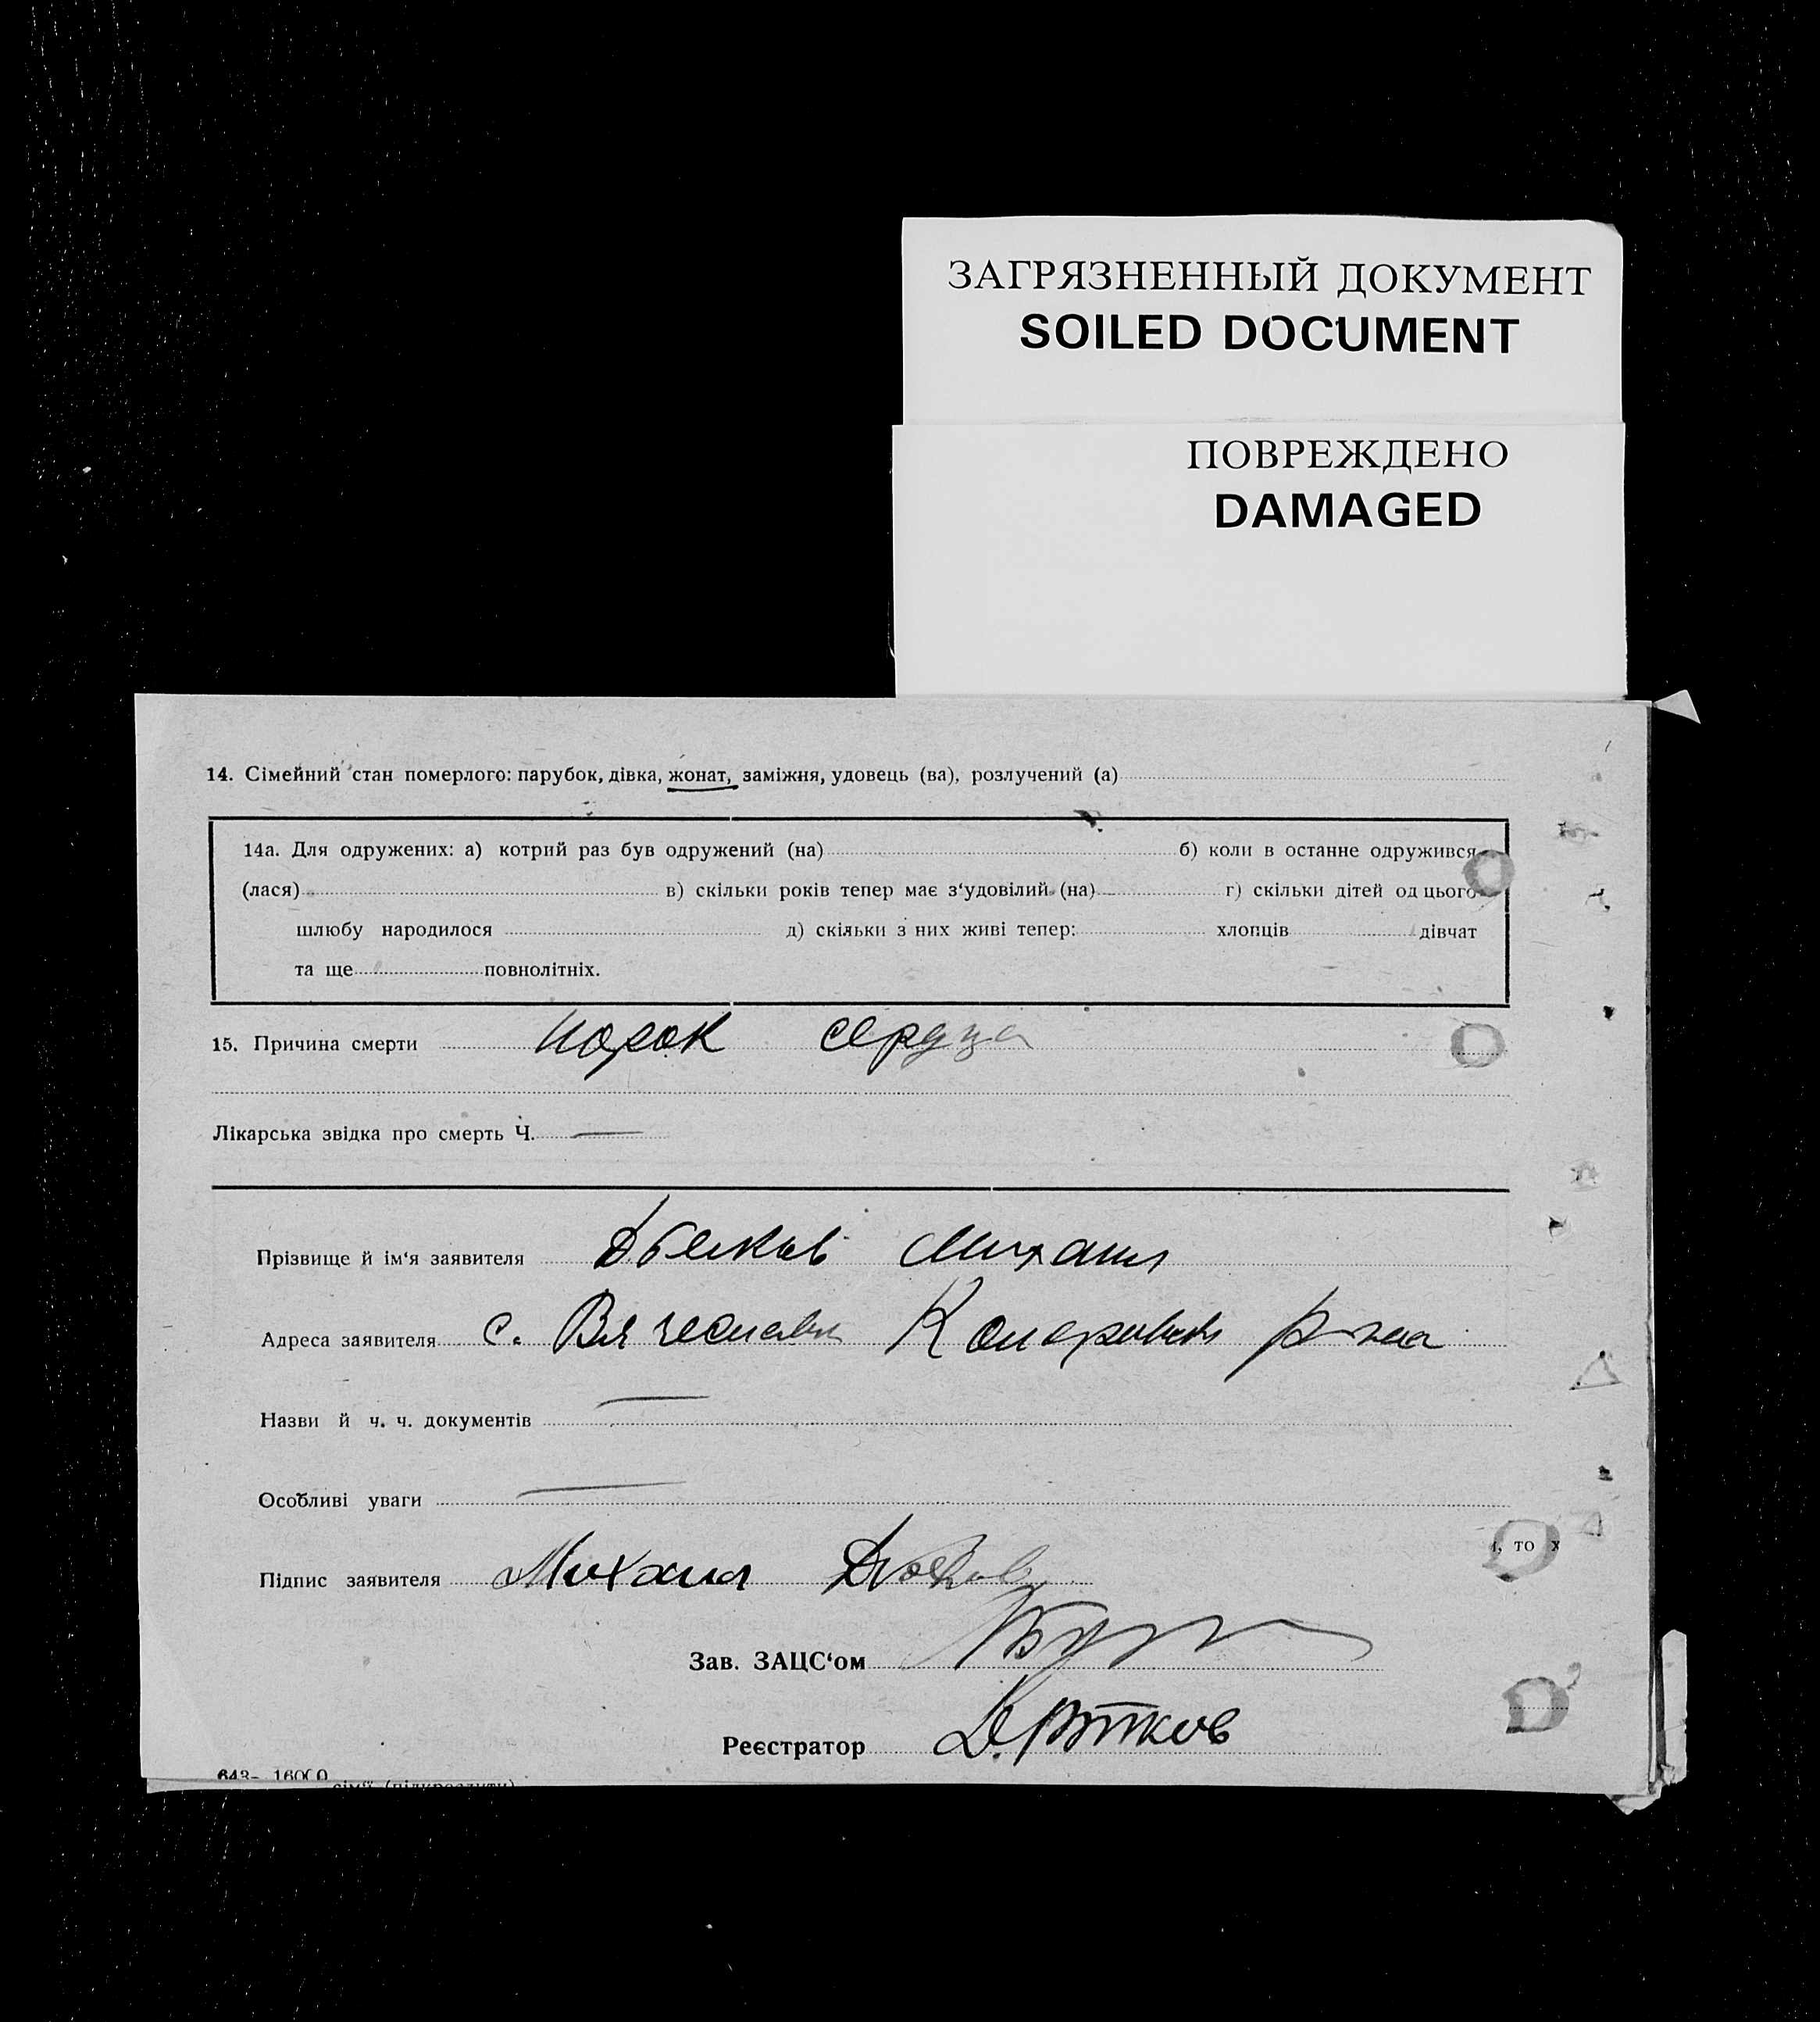 ЗАГРЯЗНЕННЫЙ ДОКУМЕНТ
SOILED DOCUMENT
ПОВРЕЖДЕНО
DAMAGED
14. Сімейний стан померлого: парубок, дівка, жонат, заміжня, удовець (ва), розлучений (а)
14а. Для одружених: а) котрий раз був одружений (на) б) коли в останне одружився
(лася) в) скільки років тепер має з‘удовілий (на) г) скільки дітей од цього
шлюбу народилося д) скільки з них живі тепер: хлопців дівчат
та ще повнолітніх.
15. Причина смерти порок сердца
Лікарська звідка про смерть Ч. —
Прізвище й ім‘я заявителя Михаил
Адреса заявителя с. р-на
Назви й ч. ч. документів —
Особливі уваги —
Підпис заявителя Михаил
і, то х
Зав. ЗАЦС‘ом
Реєстратор
643- 16000
сім'ї (підкреслити)